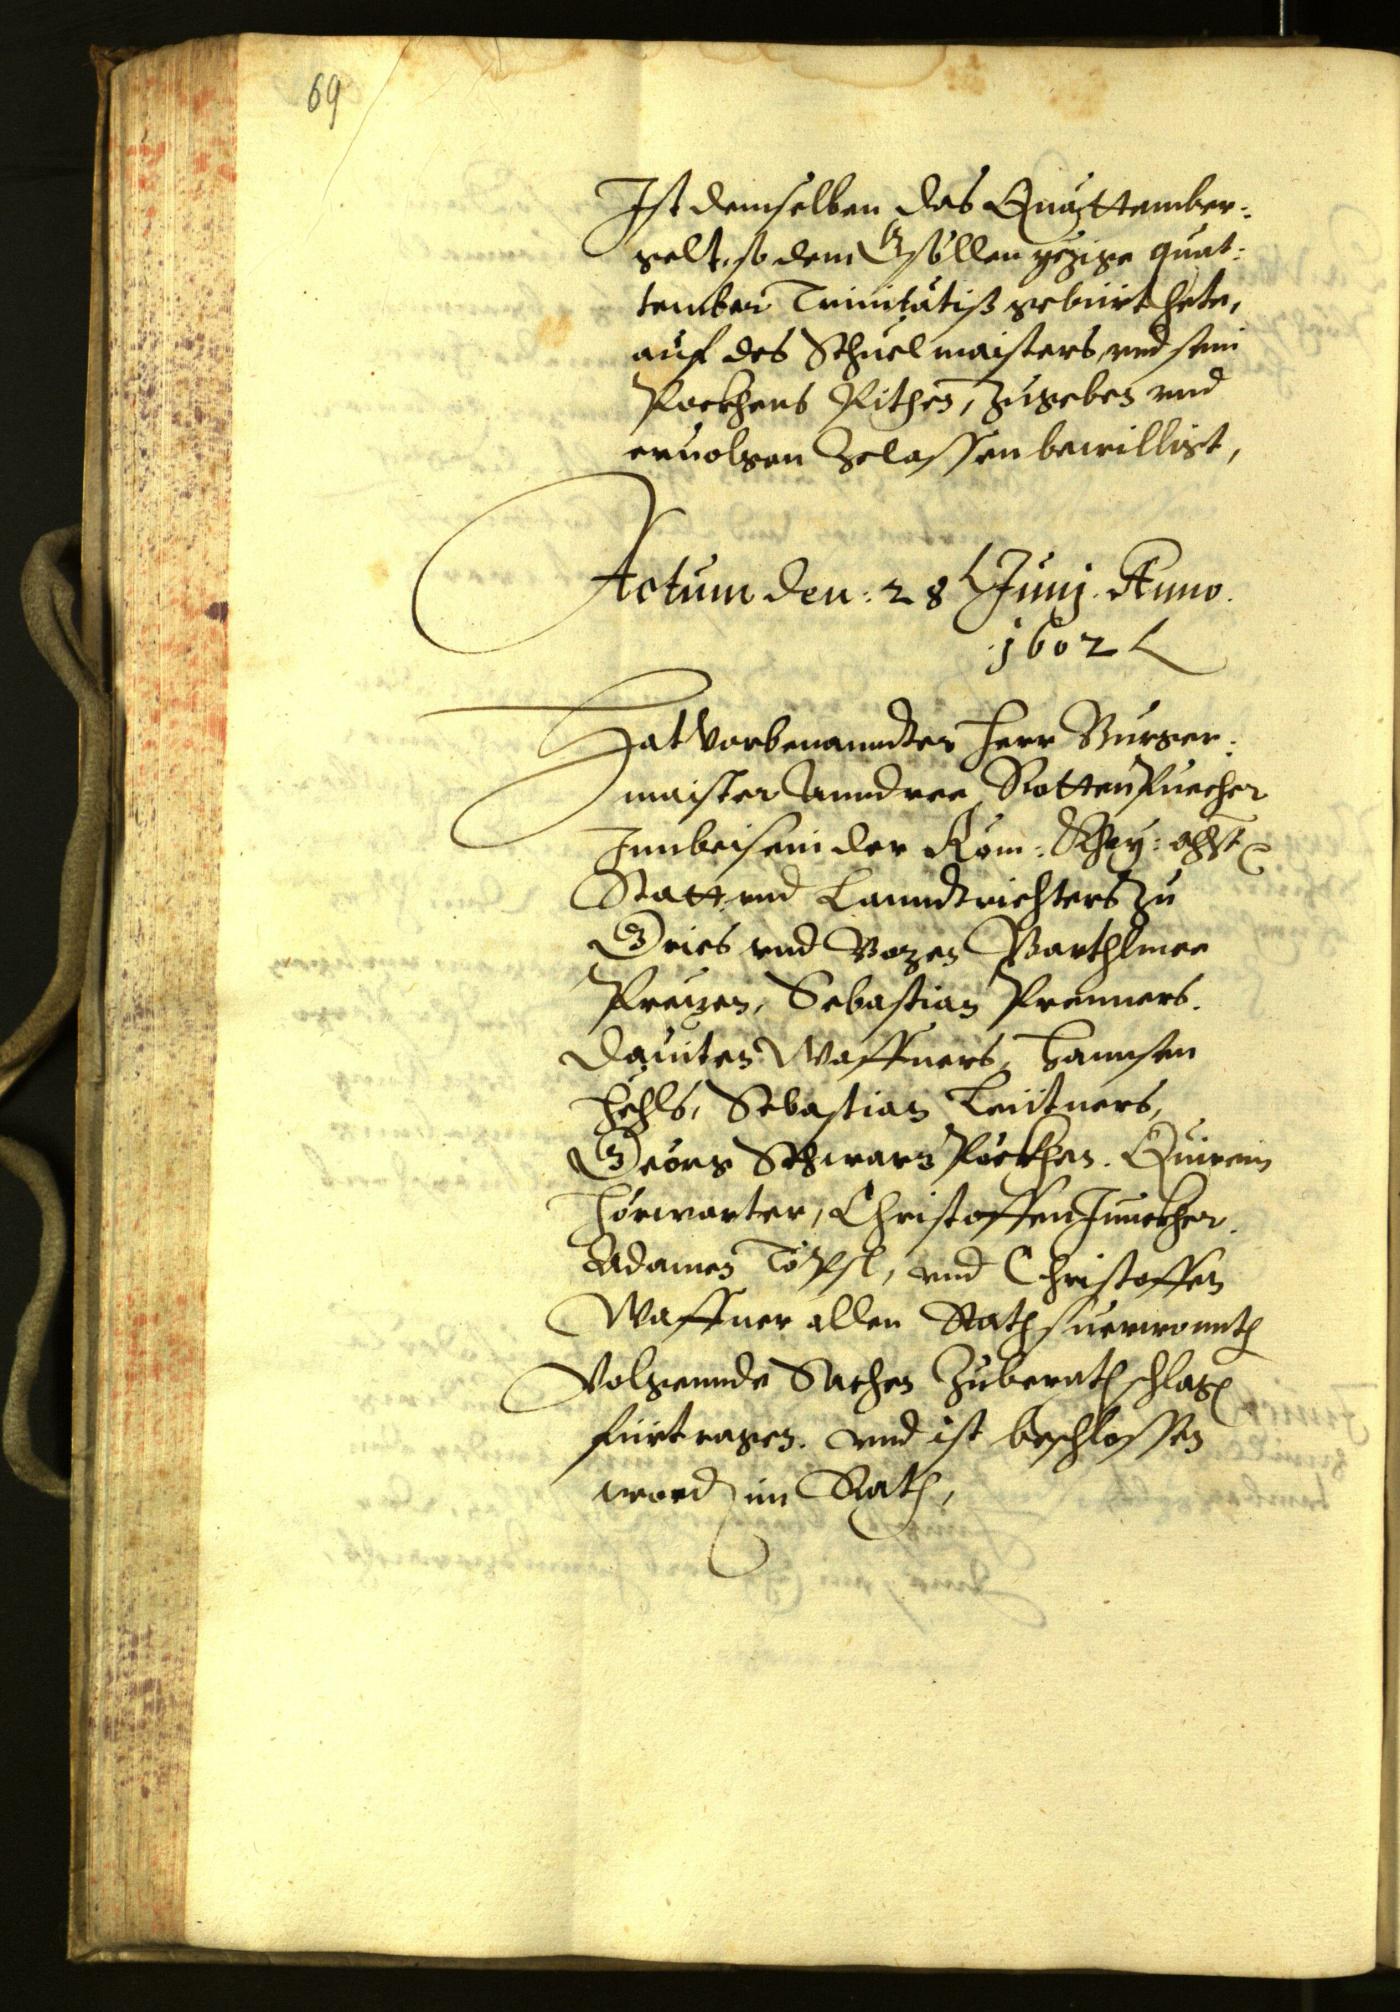 69
Ist demselben das Quattember:
gelt, so dem Gsöllen yezige quat:
tember Trinitatiß gebürt hete,
auf des Schuelmaisters vnd sein
Pockhens Pithen, zugeben vnd
eruolgen Zelassen bewilligt,
Actum den: 28 Junij. Anno.
1602
Hat vorbenanndter Herr Burger:
maister Anndree Rottenpuecher
Innbeisein der Röm: Khay:
Statt vnd Lanndtrichters zu
Gries vnd Bozen Barthlmee
Preyen, Sebastian Prenners.
Dauiten Waffners, Hannsen
Hehls, Sebastian Leütners,
Georg Schwarz Pöckhen. Quirein
Hörwarter, Christoffen Junckher.
Adamen Töpsl, vnd Christoffen
Waffner allen Rathsuerwonnth
Volgennde Sachen Zuberathschlagen
fürtragen. vnd ist beschlossen
word im Rath,